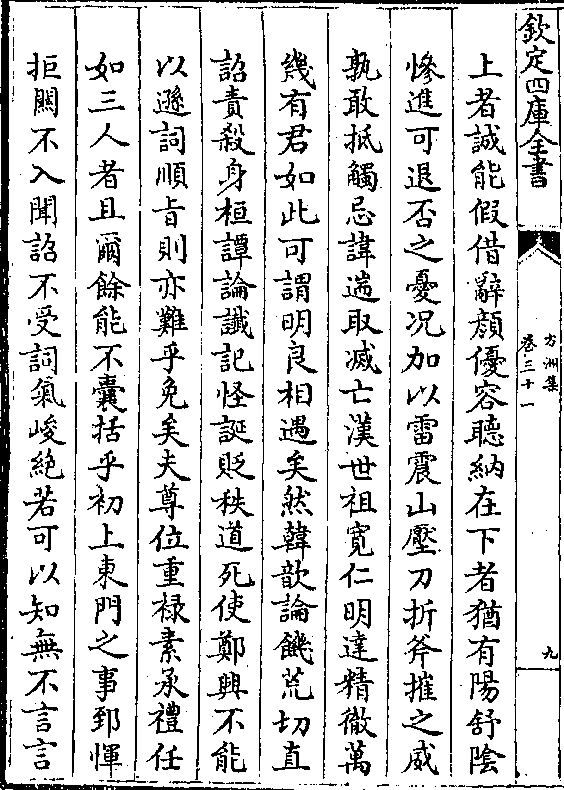 欽定四庫全書
方洲集
卷三十一
九
上者誠能假借辭顔優容聽納在下者猶有陽舒隂
慘進可退否之憂况加以雷震山壓刀折斧摧之威
孰敢抵觸忌諱遄取滅亡漢世祖寛仁明達精徹萬
幾有君如此可謂明良相遇矣然韓歆論饑荒切直
詔責殺身桓譚論讖記怪誕貶秩道死使鄭興不能
以遜詞順㫖則亦難乎免矣夫尊位重禄素承禮任
如三人者且爾餘能不囊括乎初上東門之事郅惲
拒闗不入聞詔不受詞氣峻絶若可以知無不言言